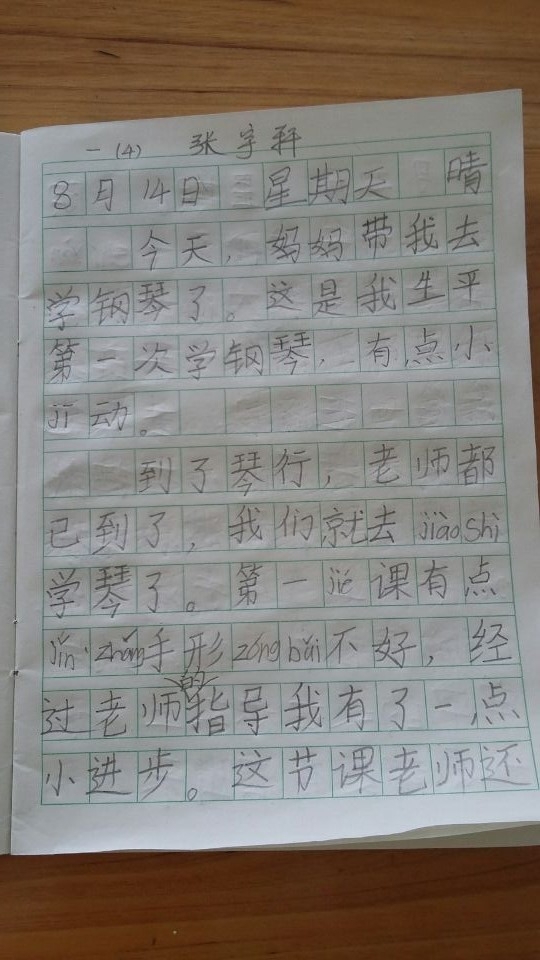 一(4) 张宇轩
8月14日 星期天 晴
今天，妈妈带我去
学钢琴了。这是我生平
第一次学钢琴，有点小
jī动。
到了琴行，老师都
已到了，我们就去jiàoshì
学琴了。第一jié课有点
jǐn zhāng手形zǒng bǎi不好，经
过老师的指导我有了一点
小进步。这节课老师还